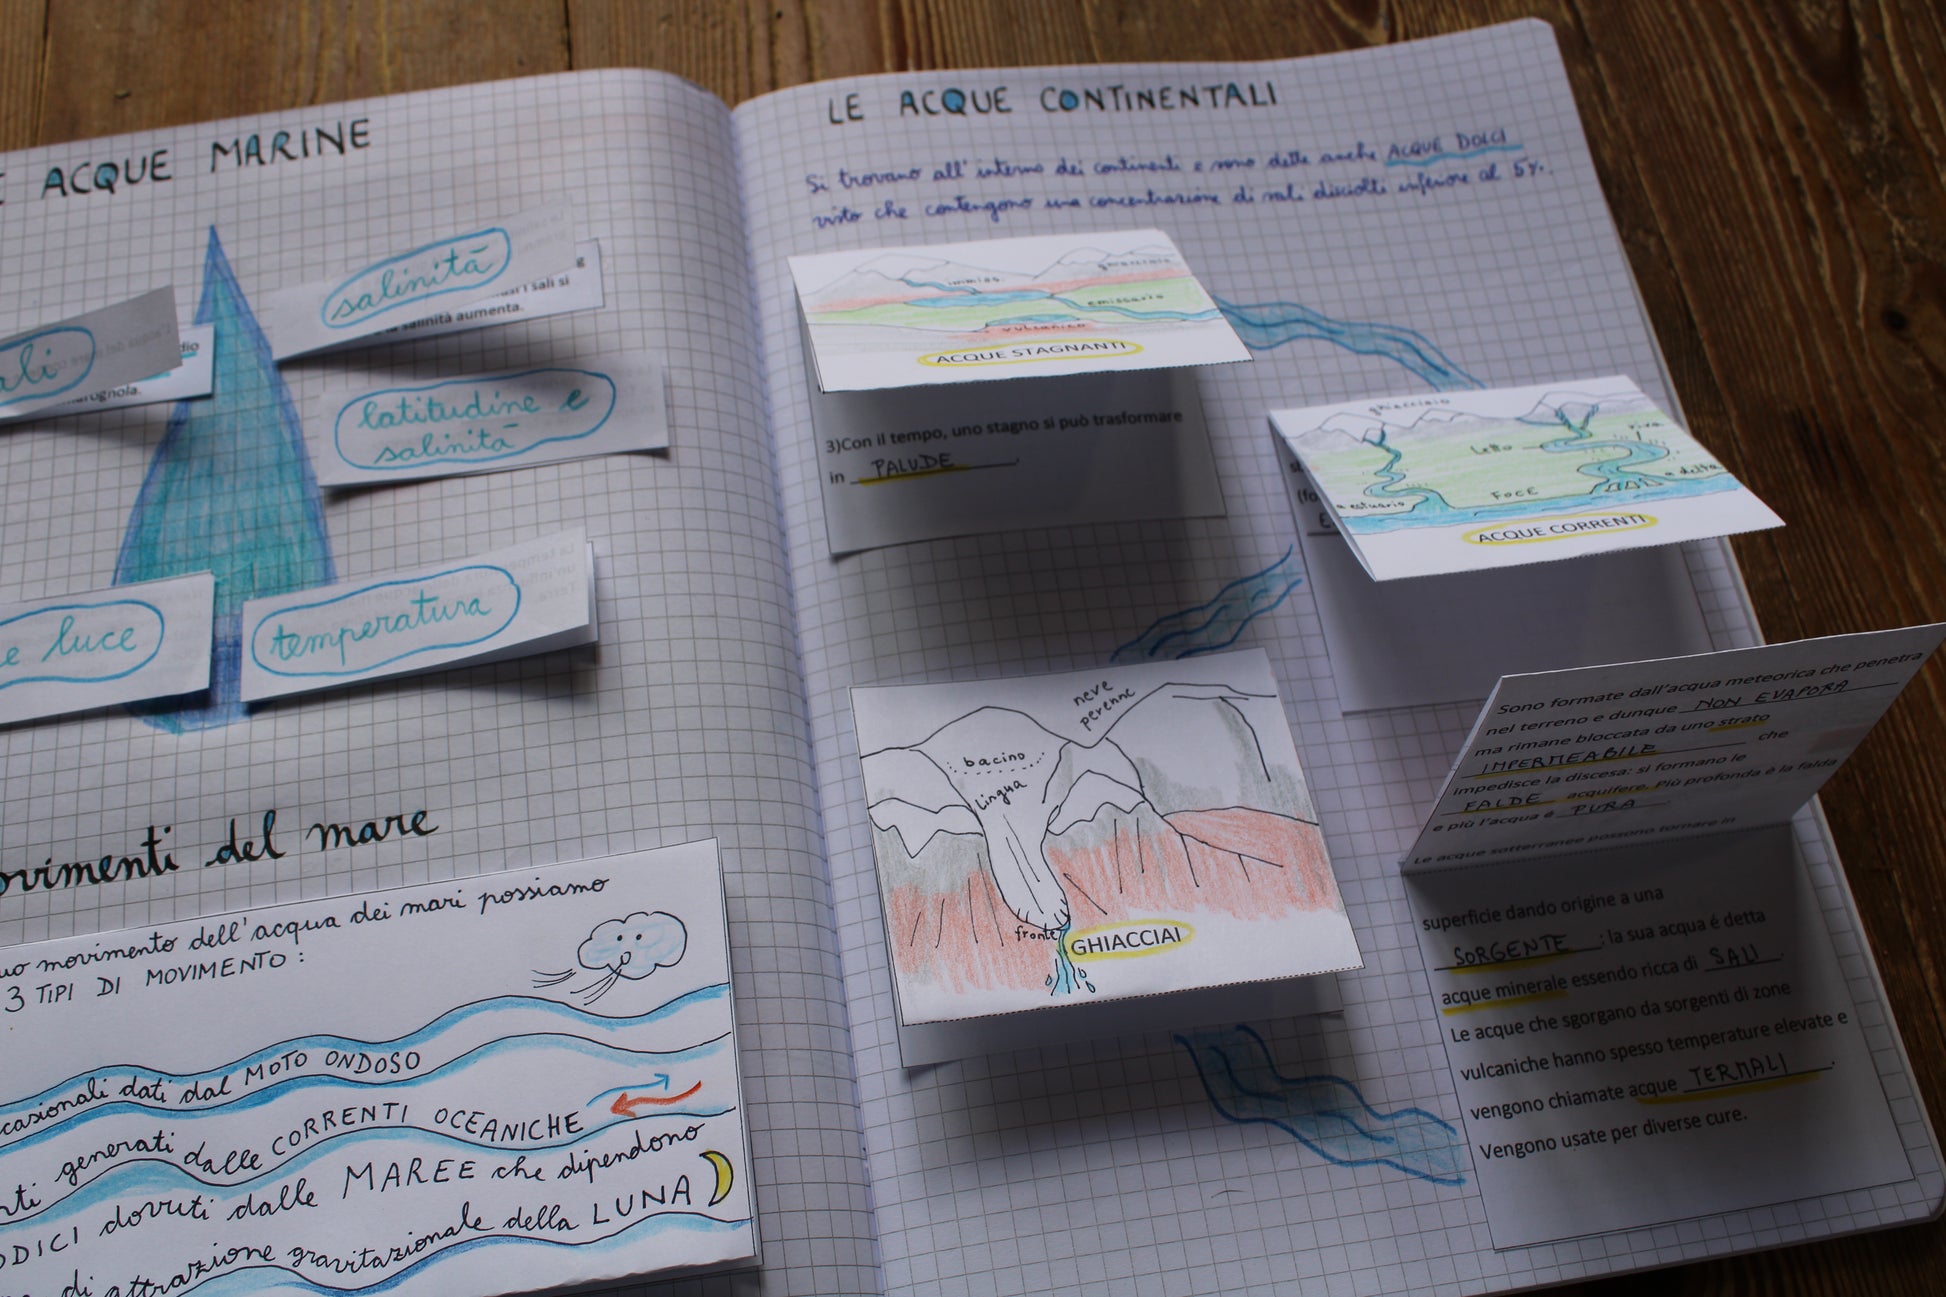 ACQUE MARINE
salinità
i sali si
salinità aumenta.
ali
dio
latitudine e
salinità
e luce
temperatura
ovimenti del mare
movimento dell'acqua dei mari possiamo
3 TIPI DI MOVIMENTO:
casionali dati dal MOTO ONDOSO
nti generati dalle CORRENTI OCEANICHE
ODICI dovuti dalle MAREE che dipendono
di attrazione gravitazionale della LUNA
LE ACQUE CONTINENTALI
Si trovano all'interno dei continenti e sono dette anche ACQUE DOLCI
visto che contengono una concentrazione di sali disciolti inferiore al 5%.
immiss.
ghiacciaio
emissario
vulcanico
ACQUE STAGNANTI
3)Con il tempo, uno stagno si può trasformare
in PALUDE.
ghiacciaio
riva
Letto
a delta
FOCE
a estuario
ACQUE CORRENTI
neve
perenne
bacino
Lingua
fronte
GHIACCIAI
Sono formate dall'acqua meteorica che penetra
nel terreno e dunque NON EVAPORA
ma rimane bloccata da uno strato
IMPERMEABILE che
impedisce la discesa: si formano le
FALDE acquifere. Più profonda è la falda
e più l'acqua è PURA.
Le acque sotterranee possono tornare in
superficie dando origine a una
SORGENTE: la sua acqua é detta
acque minerale essendo ricca di SALI.
Le acque che sgorgano da sorgenti di zone
vulcaniche hanno spesso temperature elevate e
vengono chiamate acque TERMALI.
Vengono usate per diverse cure.